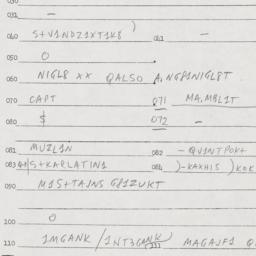 030
031 –
040 S+V1NDZ1XT1K8 ) 041 –
050 0
060 N1GL8 XX QALSO A.NGP1N1GL8T
070 CAPT 071 MA.MBL1T
080 $ 072 –
081 MUZL1N 082 - QV1NTPOK+
083 S+KARLAT1N1 084 )-KAXH1S ) KOK
090 M1S+TAJNS GP1ZUKT
100 0
110 1MGANK / 1NT3GANK (111) MAGAJF1 Q